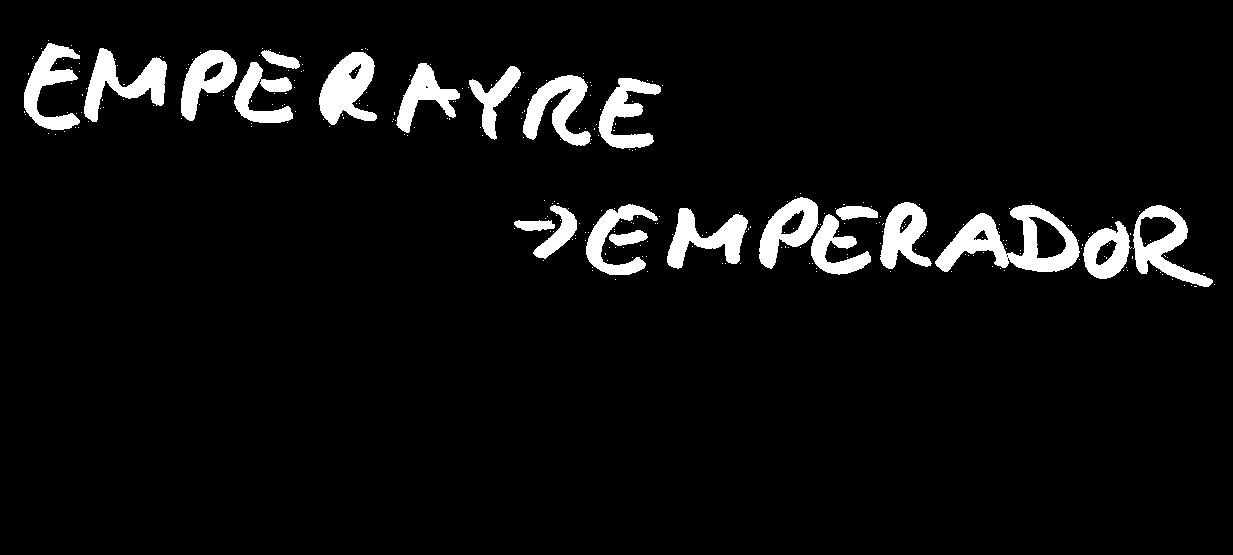 EMPERAYRE
→EMPERADOR